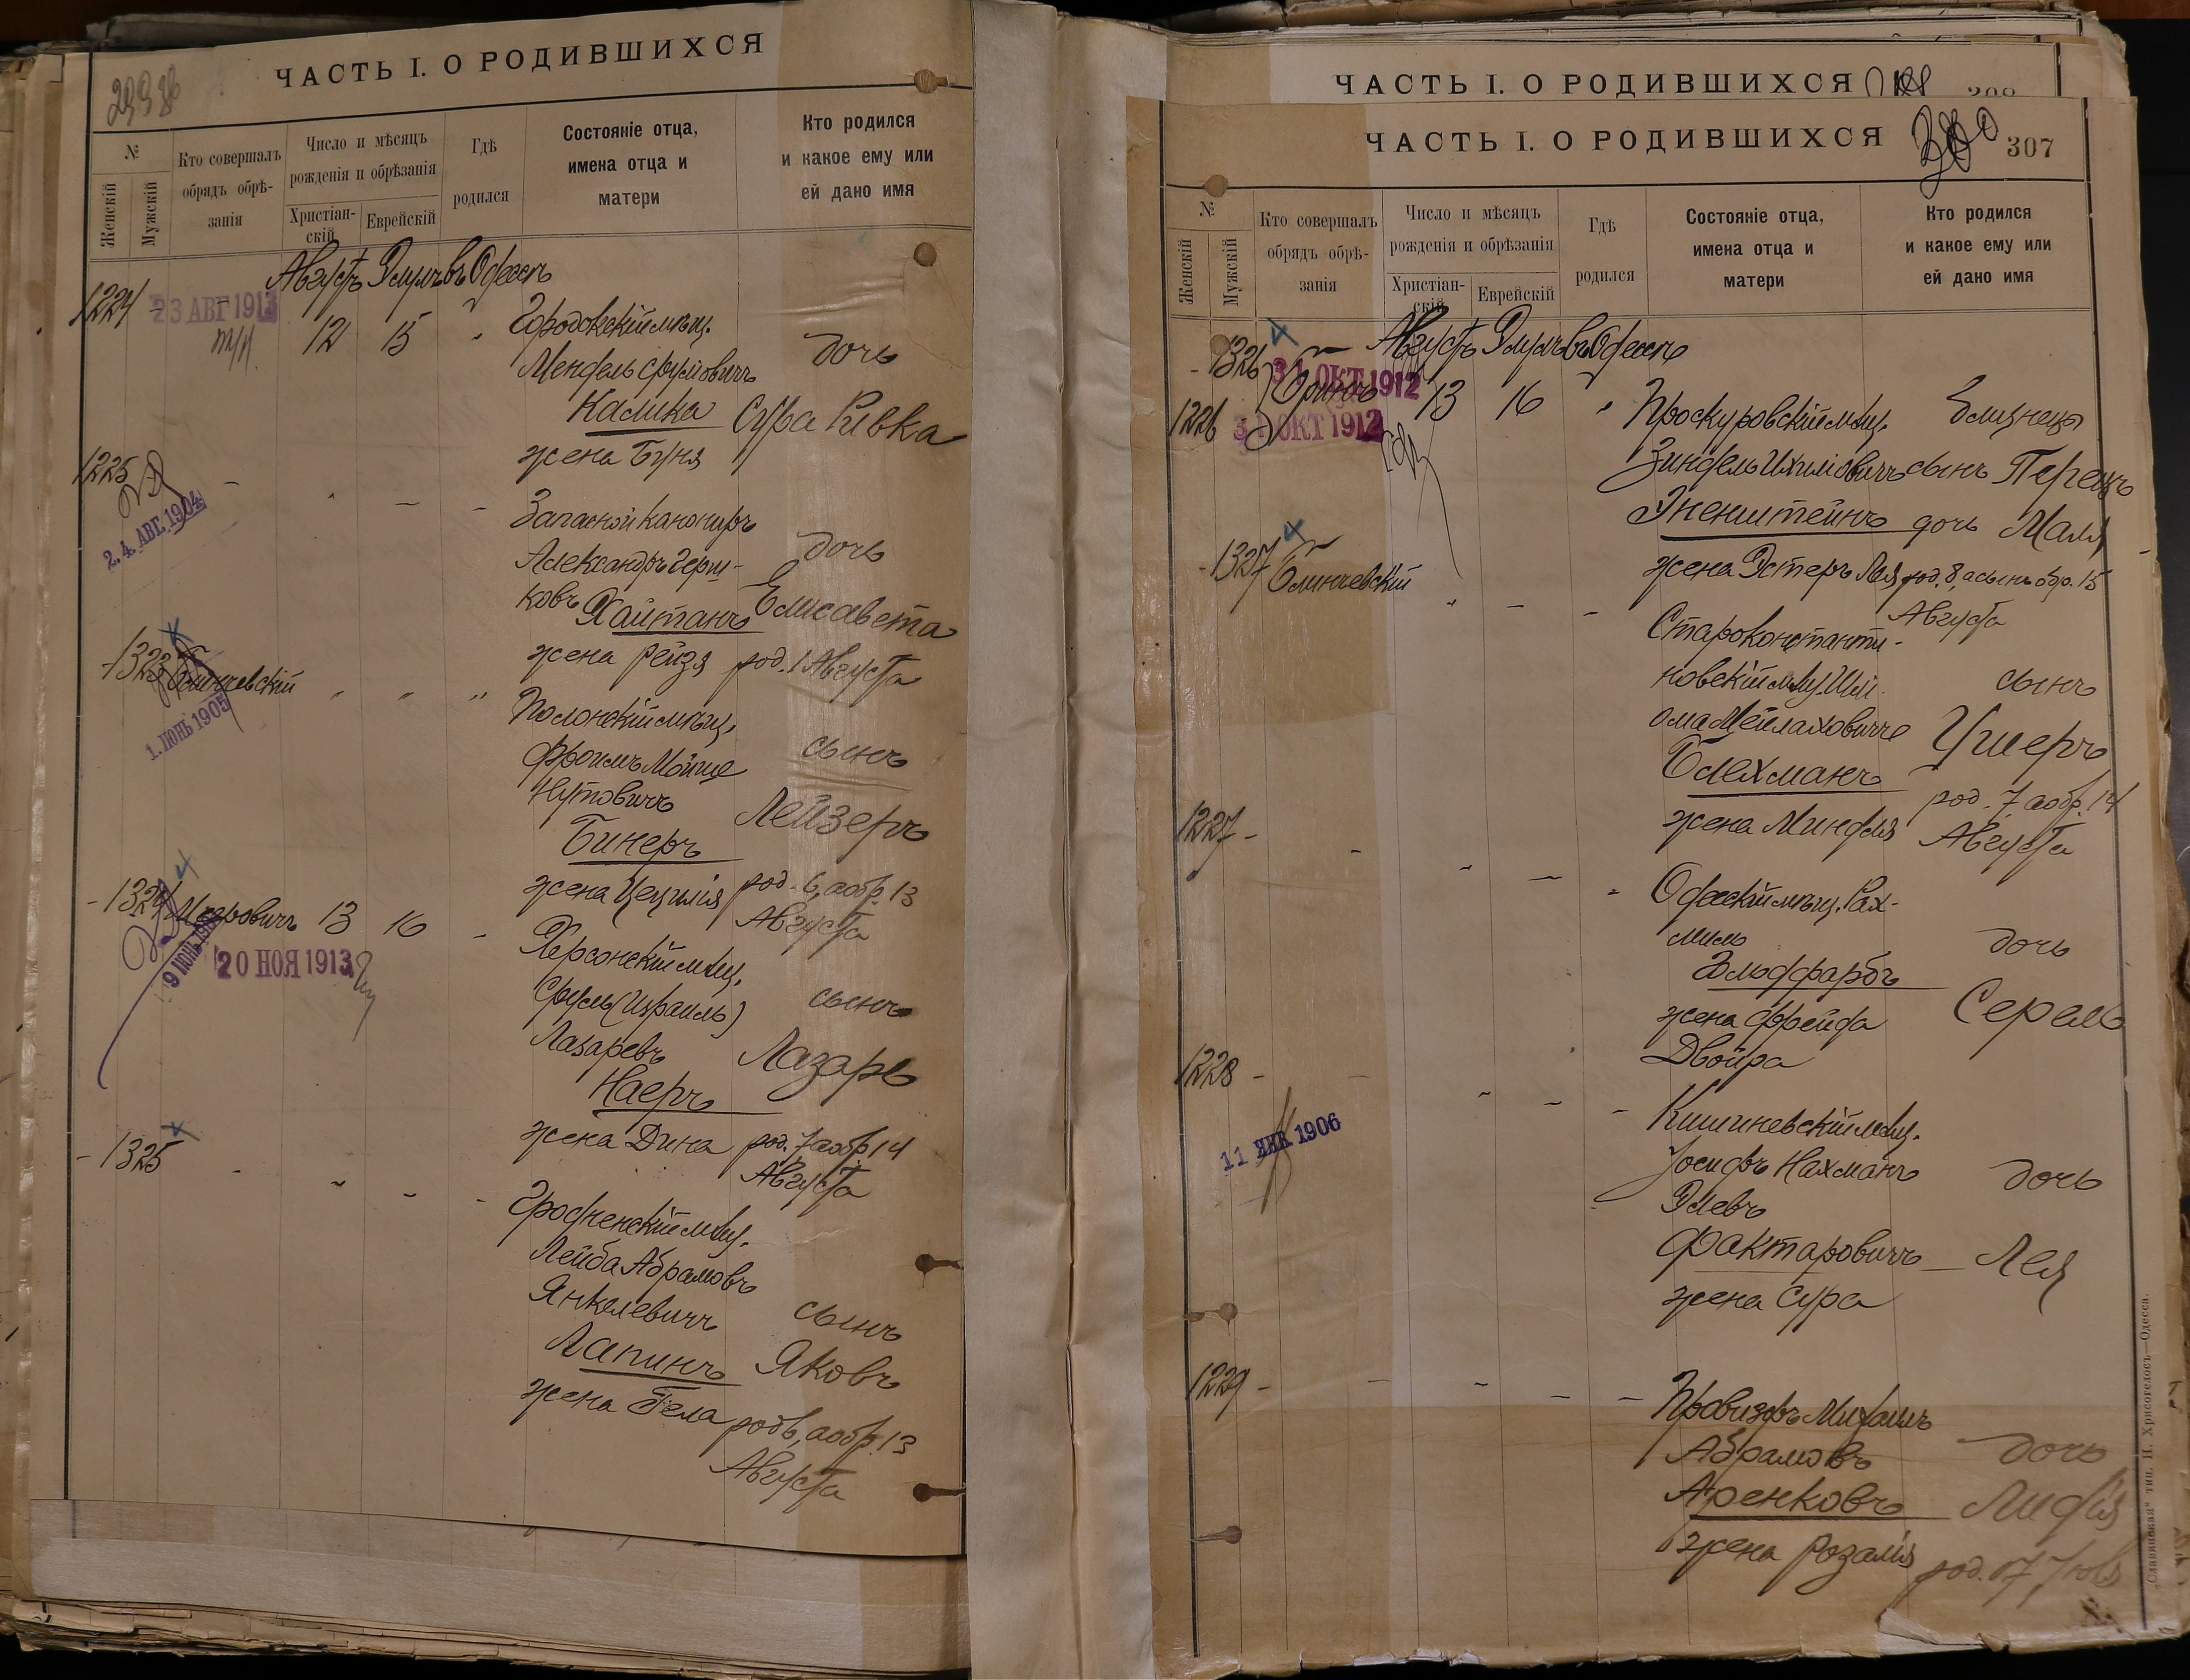 ЧАСТЬ I. О РОДИВШИХСЯ
№
Женскій
Мужскій
Кто совершалъ
обрядъ обрѣ-
занія
Число и мѣсяцъ
рожденія и обрѣзанія
Христіан-
скій
Еврейскій
Гдѣ
родился
Состояніе отца,
имена отца и
матери
Кто родился
и какое ему или
ей дано имя
Августъ Элулъ въ Одессѣ
1224 - 23 АВГ 1913
12 15 " Городокскій мѣщ.
Мендель Сруловичъ дочь
Калика Сура Ривка
жена Буня
1225
2.4. АВГ. 1904
Запасной канониръ
Александръ Герш-
ковъ дочь
Хайтанъ Елисавета
жена Рейзя род. 1 Августа
1323 Блинчевскій " " "
1. ІЮНЬ 1905
Полонскій мѣщ.
Фроимъ Мойше сынъ
Нутовичъ Лейзеръ
Бинеръ
жена Цецилія род. 6, а обр. 13
Августа
1324 Меровичъ 13 16 -
9 ІЮНЬ
20 НОЯ 1913
Херсонскій мѣщ.
Сруль (Израиль) сынъ
Лазаревъ Лазарь
Наеръ
жена Дина род. 7 а обр 14
Августа
1325
Гродненскій мѣщ.
Лейба Абрамовъ
Янкелевичъ сынъ
Лапинъ Яковъ
жена Бела род 6, а обр. 13
Августа
ЧАСТЬ I. О РОДИВШИХСЯ
ЧАСТЬ I. О РОДИВШИХСЯ 307
№
Женскій
Мужскій
Кто совершалъ
обрядъ обрѣ-
занія
Число и мѣсяцъ
рожденія и обрѣзанія
Христіан-
скій
Еврейскій
Гдѣ
родился
Состояніе отца,
имена отца и
матери
Кто родился
и какое ему или
ей дано имя
Августъ Элулъ въ Одессѣ
1326 31 ОКТ 1912
1226 31 ОКТ 1912
13 16 " Проскуровскій мѣщ. близнецы
Зиндель Ихиловичъ сынъ Перецъ
Эненштейнъ дочь Маля
жена Эстеръ Лея род. 8, а сынъ обр. 15
Августа
1327 Блинчевскій
Староконстанти-
новскій мѣщ. Шл- сынъ
ома Мейлаховичъ Ушеръ
Блехманъ
жена Миндля род. 7 а обр. 14
Августа
1227 -
Одесскій мѣщ. Рах-
миль дочь
Гольдфарбъ
жена Фрейда Серель
Двойра
1228 -
11 ЯНВ. 1906
Кишиневскій мѣщ.
Іосифъ Нахманъ дочь
Элевъ
Фактаровичъ Лея
жена Сура
1229 -
Провизоръ Михаилъ
Абрамовъ дочь
Аренковъ Лидія
жена Розалія род. 17 Іюля
„Славянская“ тип. Н. Хрисогелосъ—Одесса.